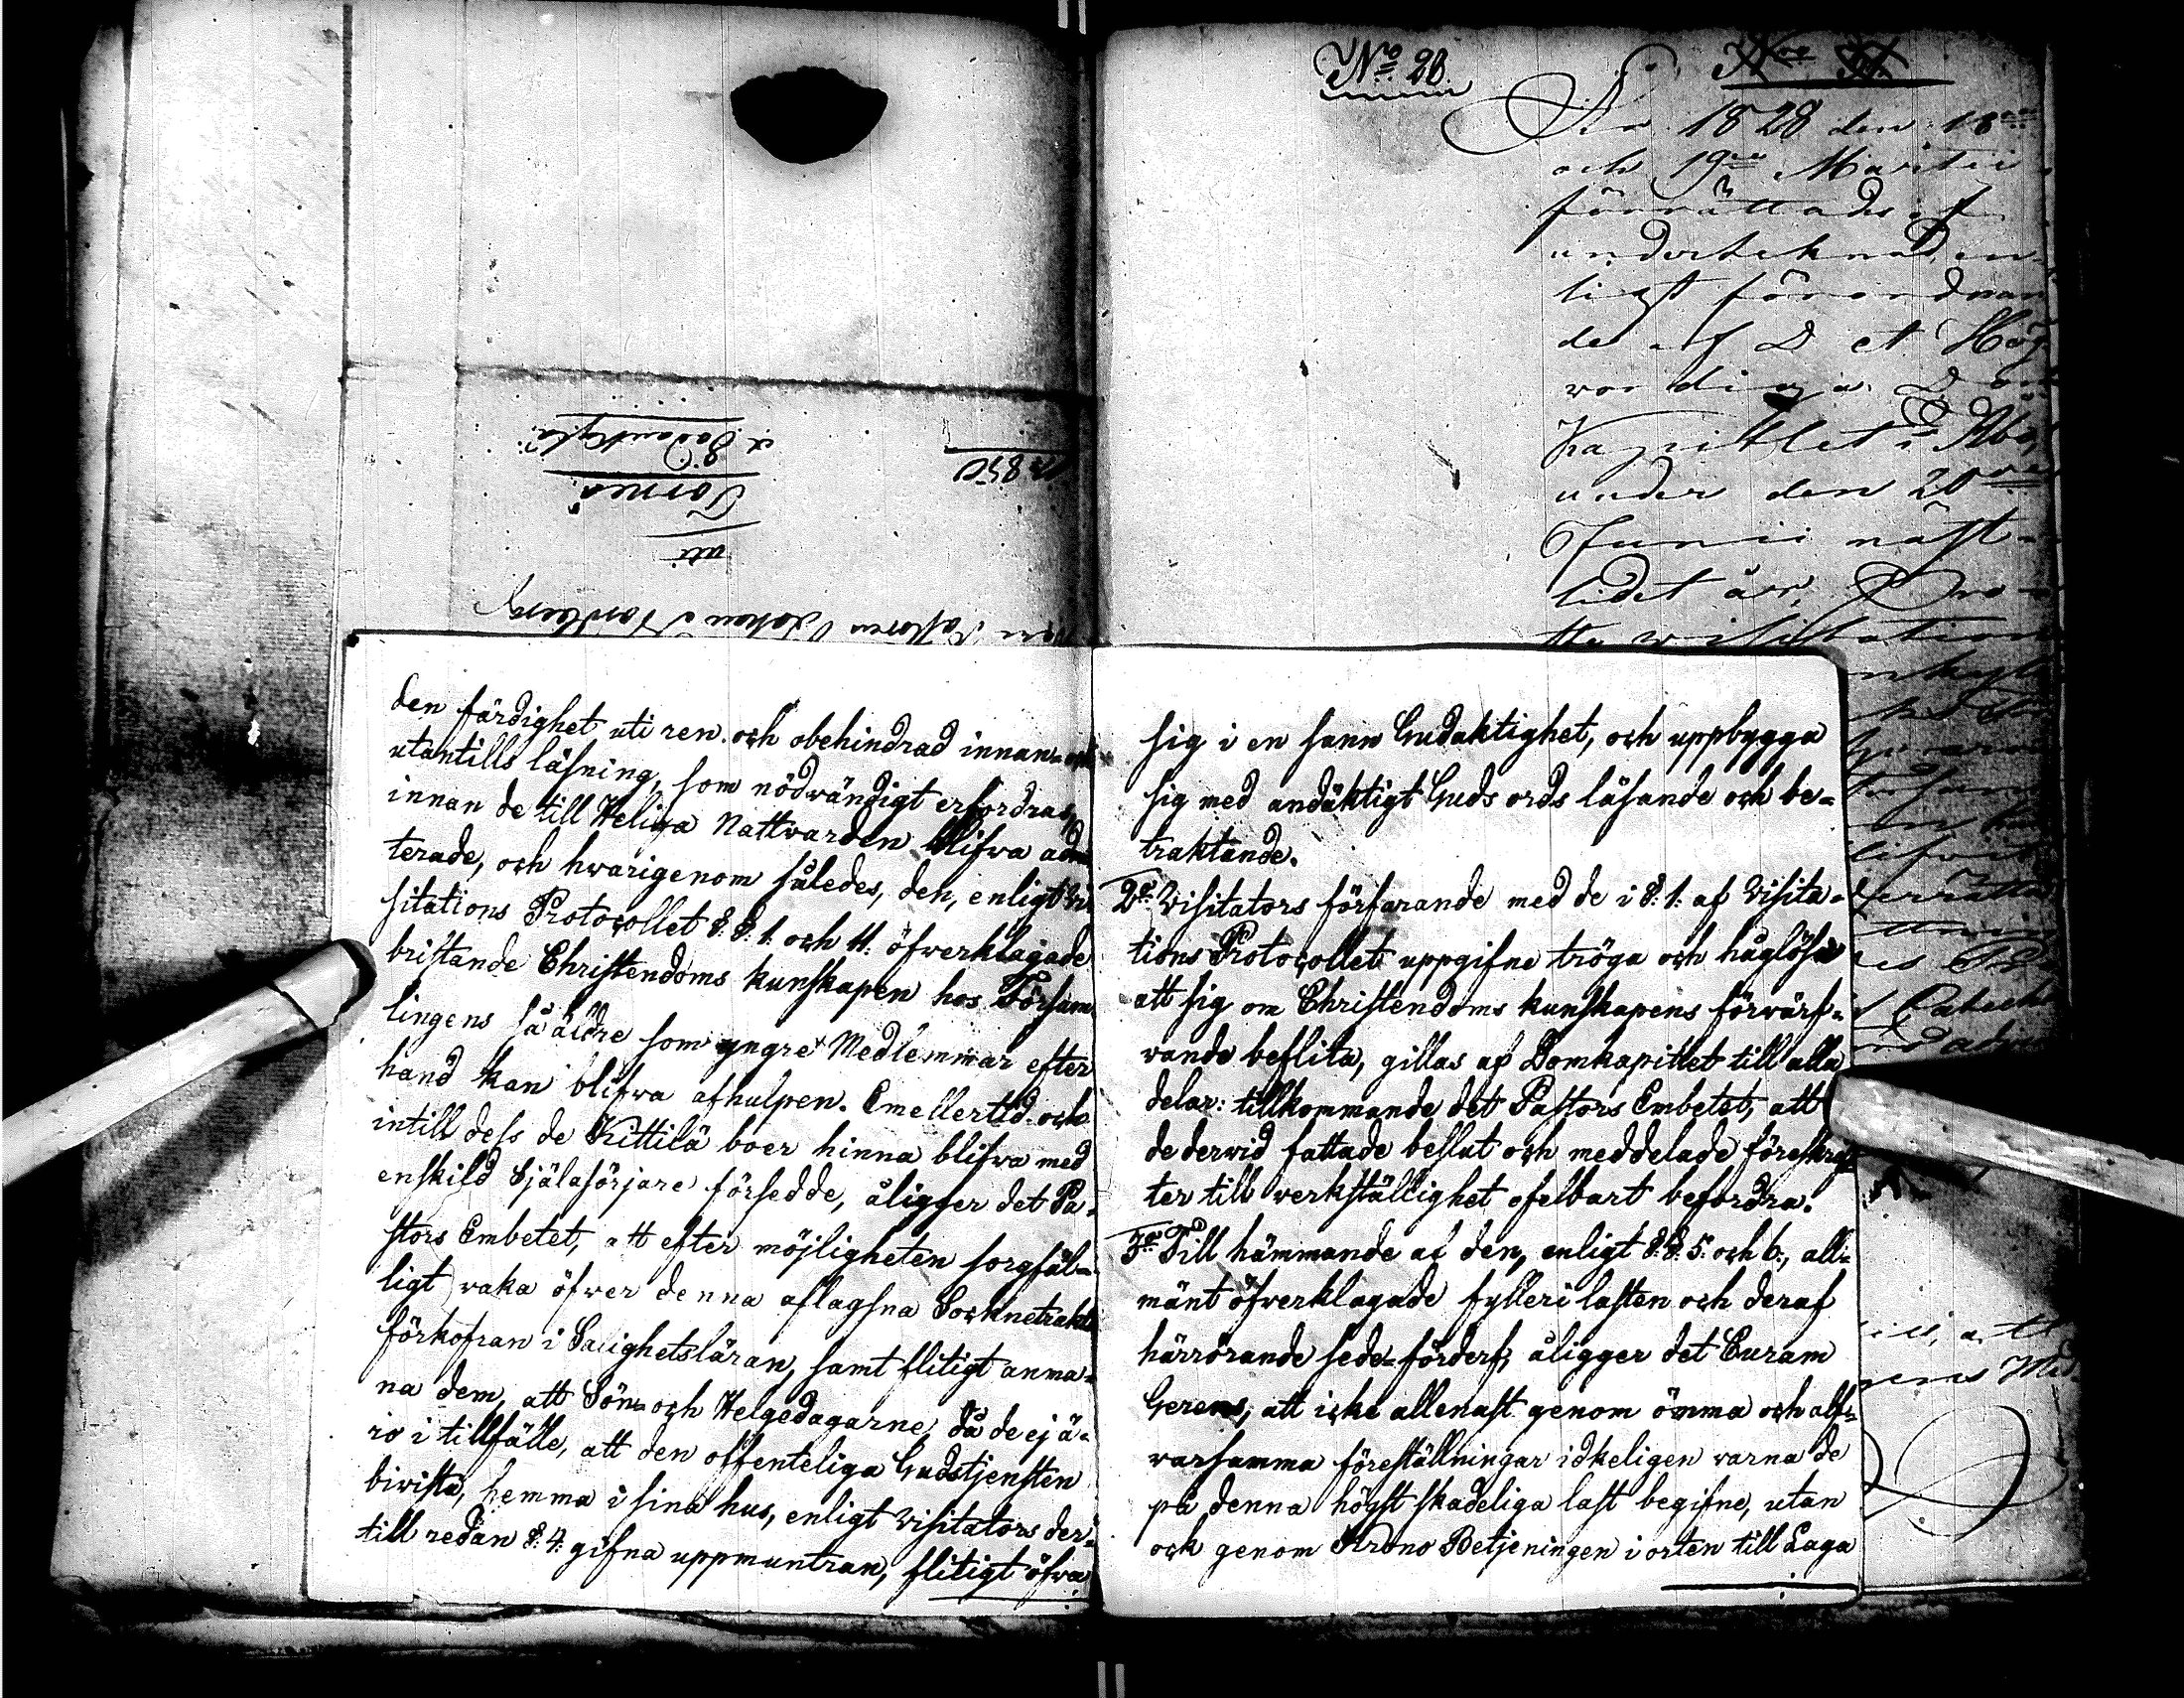 uti
Torneå
&c. Sodankylä
N: 850
den färdighet uti ren och obehindrad innan- och
utantills läsning, som nödwändigt erfordras,
innan de till Heliga Nattvarden blifwa admi
terade, och hwarigenom således, den, enligt Vi
sitations Protocollet §.§. 1. och 11. öfwerklagade
bristande Christendoms kunskapen hos Försam
lingens så äldre som yngre Medlemmar efter
hand kan blifwa afhulpen. Emellertid och
intill dess de Kittilä boer hinna blifwa med
enskild Själasörjare försedde, åligger det Pa-
stors Embetet, att efter möjligheten sorgfäl-
ligt waka öfwer denna aflägsna Socknetrakts
förkofran i Salighetsläran, samt flitigt anma-
na dem, att Sön- och Helgedagarne, då de ej ä-
ro i tillfälle, att den offenteliga Gudstjensten
biwista, hemma i sina hus, enligt Visitators der-
till redan §. 4. gifna uppmuntran, flitigt öfwa
No 28.
År 1828 den 18
och 19 Martii
förrättades af
undertecknad, en-
ligt förordnan
de af D et Hög
vordiga Dom
Kapittlet i Åbo,
under den 20
Junii näst-
lidet år, Pro-
sig i en sann Gudaktighet, och uppbygga
sig med andäktigt Guds ords läsande och be-
traktande.
2o Visitators förfarande med de i §. 1. af Visita-
tions Protocollet uppgifne tröga och håglösa
att sig om Christendoms kunskapens förwärf-
wande beflita, gillas af Domkapitlet till alla
delar: tillkommande det Pastors Embetet, att
de derwid fattade beslut och meddelade föreskrif-
ter till werkställighet ofelbart befordra.
3o Till hämmande af den, enligt §.§. 5. och 6., all-
mänt öfwerklagade fylleri lasten och deraf
härrörande sede-förderf, åligger det Curam
Gerens, att icke allenast genom ömma och alf-
warsamma föreställningar idkeligen warna de
på denna högst skadeliga last begifne, utan
ock genom Krono Betjeningen i orten till Laga